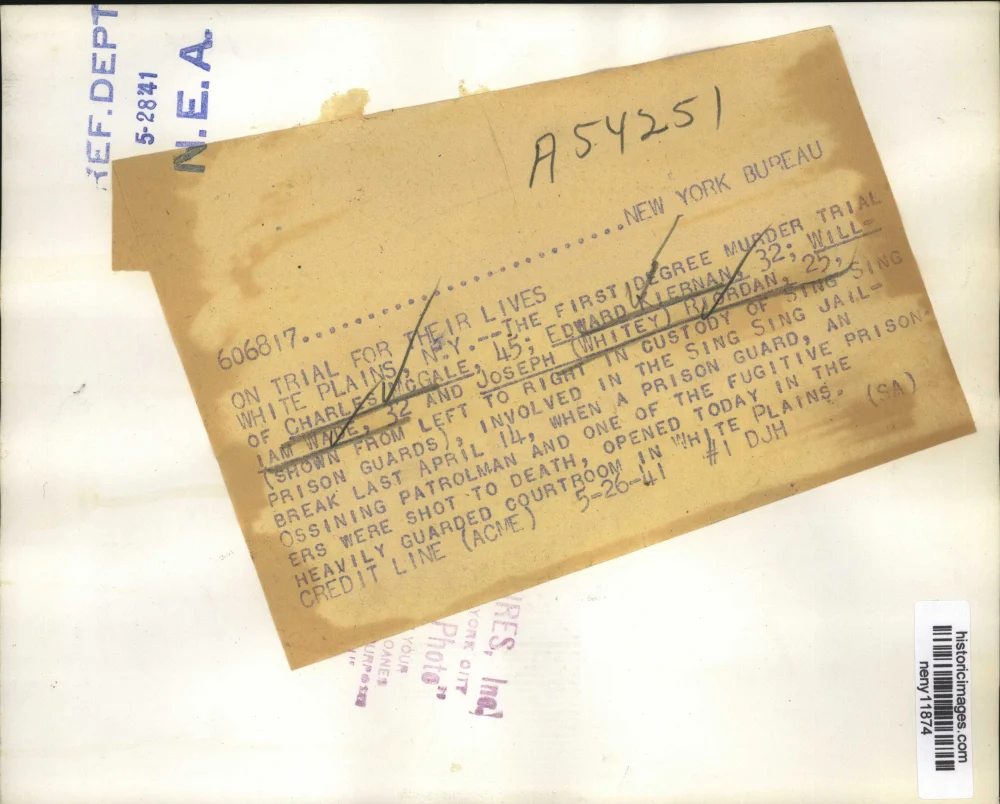 REF.DEPT
5-28-41
N.E.A.
A54251
606817..............................NEW YORK BUREAU
ON TRIAL FOR THEIR LIVES
WHITE PLAINS, N.Y.---THE FIRST DEGREE MURDER TRIAL
OF CHARLES MCGALE, 45; EDWARD KIERNAN, 32; WILL-
IAM WADE, 32 AND JOSEPH (WHITEY) RIORDAN, 25,
(SHOWN FROM LEFT TO RIGHT IN CUSTODY OF SING SING
PRISON GUARDS), INVOLVED IN THE SING SING JAIL-
BREAK LAST APRIL 14, WHEN A PRISON GUARD, AN
OSSINING PATROLMAN AND ONE OF THE FUGITIVE PRISON-
ERS WERE SHOT TO DEATH, OPENED TODAY IN THE
HEAVILY GUARDED COURTROOM IN WHITE PLAINS.
CREDIT LINE (ACME) 5-26-41 #1 DJH (SA)
Inc
YORK CITY
Photo"
YOUR
historicimages.com
neny11874